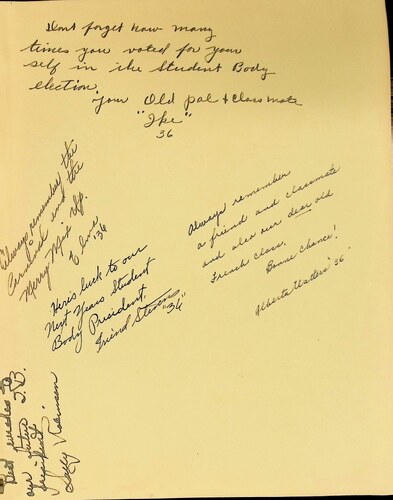 Dont forget how many
times you voted for your
self in the Student Body
election.
Your Old pal & Classmate
"Ike"
36
Always remember the
Carnival and the
Merry Mix Up.
'36
Here's luck to our
Next Years Student
Body President.
Friend Stevens
"36"
Always remember
a friend and classmate
and also our dear old
French class.
Bonne Chance!
Alberta Watters '36
Best wishes to
our future S.B.